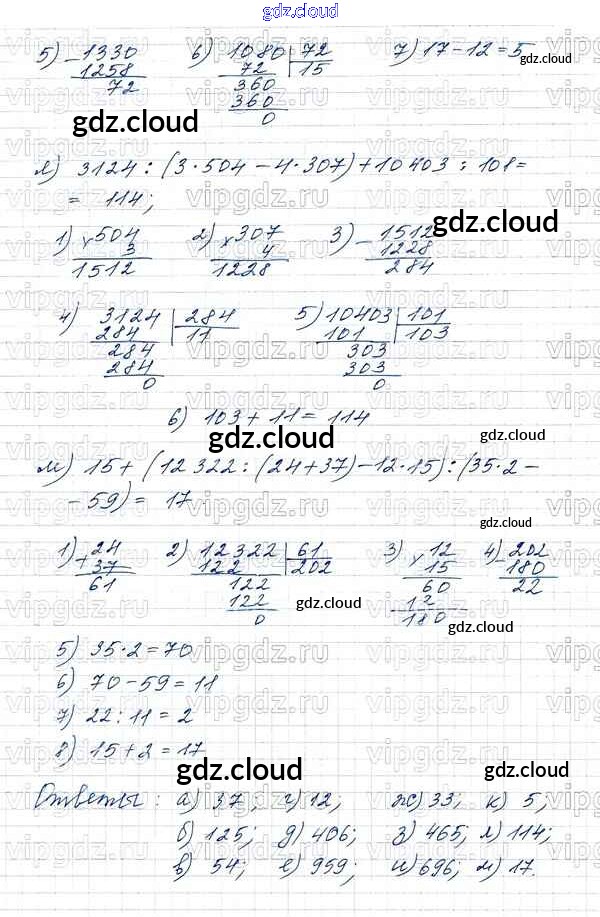 gdz.cloud
gdz.cloud
5) - 1330 6) 1080 | 72 7) 17 - 12 = 5
1258 72 15
72 360
360
0
gdz.cloud gdz.cloud
л) 3124 : (3 · 504 - 4 · 307) + 10403 : 101 =
= 114;
gdz.cloud
1) × 504 2) × 307 3) - 1512
3 4 1228
1512 1228 284
4) 3124 | 284 5) 10403 | 101
284 11 101 103
284 303
284 303
0 0
6) 103 + 11 = 114
gdz.cloud gdz.cloud
м) 15 + (12322 : (24 + 37) - 12 · 15) : (35 · 2 -
- 59) = 17
gdz.cloud
1) + 24 2) 12322 | 61 3) × 12 4) - 202
37 122 202 15 180
61 122 60 22
122 12
0 180
gdz.cloud gdz.cloud
5) 35 · 2 = 70
6) 70 - 59 = 11
7) 22 : 11 = 2
8) 15 + 2 = 17
gdz.cloud gdz.cloud
Ответы: а) 37; г) 12; ж) 33; к) 5;
б) 125; д) 406; з) 465; л) 114;
в) 54; е) 959; и) 696; м) 17.
gdz.cloud gdz.cloud